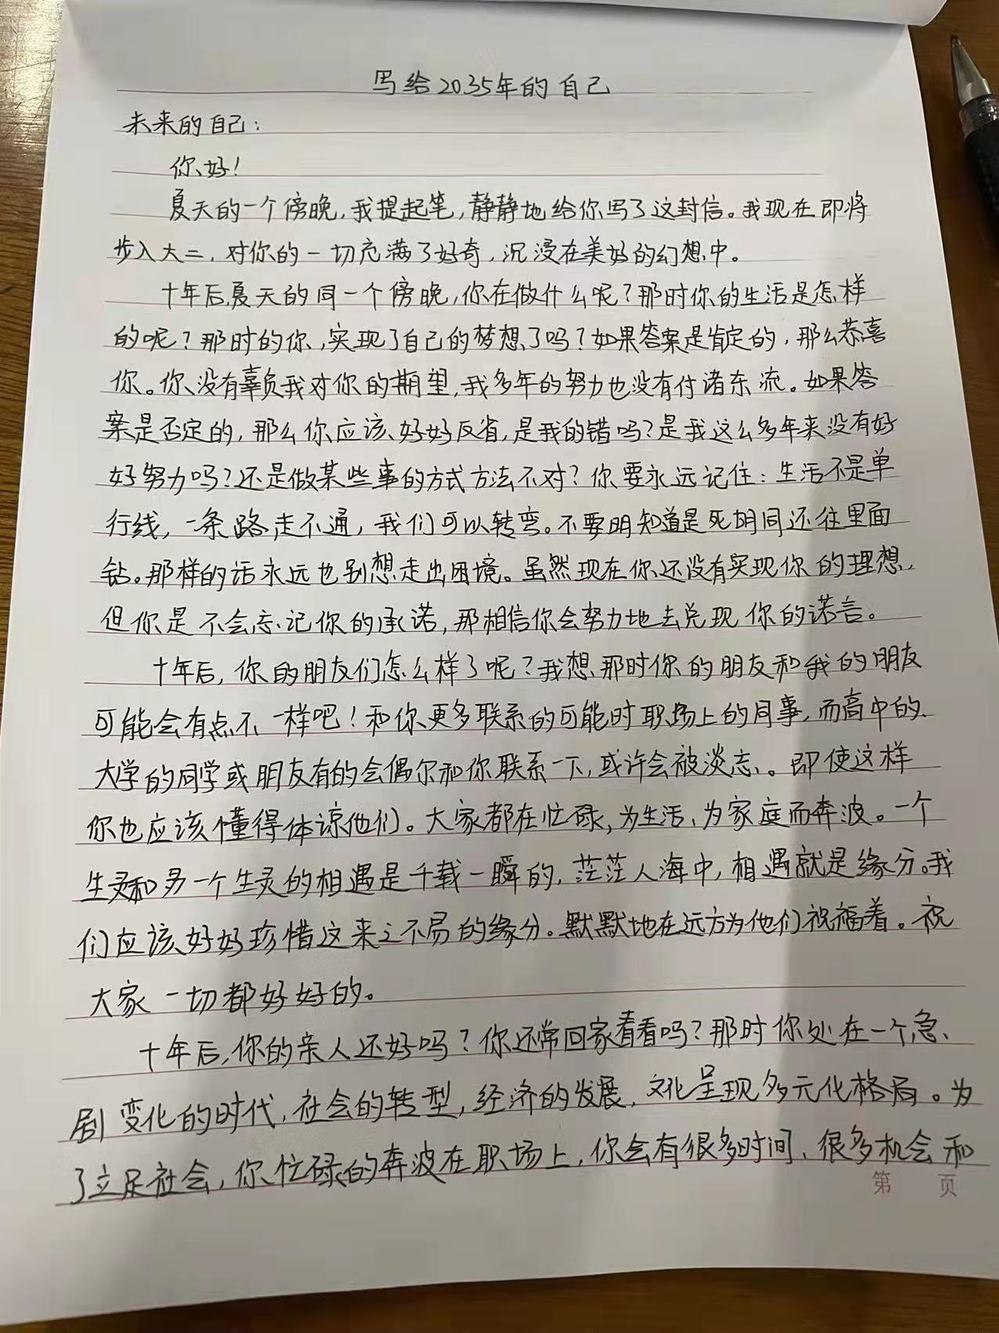 写给2035年的自己
未来的自己：
你好！
夏天的一个傍晚，我提起笔，静静地给你写了这封信。我现在即将
步入大二，对你的一切充满了好奇，沉浸在美好的幻想中。
十年后，夏天的同一个傍晚，你在做什么呢？那时你的生活是怎样
的呢？那时的你，实现了自己的梦想了吗？如果答案是肯定的，那么恭喜
你。你没有辜负我对你的期望，我多年的努力也没有付诸东流。如果答
案是否定的，那么你应该好好反省，是我的错吗？是我这么多年来没有好
好努力吗？还是做某些事的方式方法不对？你要永远记住：生活不是单
行线，一条路走不通，我们可以转弯。不要明知道是死胡同还往里面
钻。那样的话永远也别想走出困境。虽然现在你还没有实现你的理想，
但你是不会忘记你的承诺，那相信你会努力地去兑现你的诺言。
十年后，你的朋友们怎么样了呢？我想，那时你的朋友和我的朋友
可能会有点不一样吧！和你更多联系的可能时职场上的同事，而高中的、
大学的同学或朋友有的会偶尔和你联系一下，或许会被淡忘。即使这样
你也应该懂得体谅他们。大家都在忙碌，为生活、为家庭而奔波。一个
生灵和另一个生灵的相遇是千载一瞬的，茫茫人海中，相遇就是缘分。我
们应该好好珍惜这来之不易的缘分。默默地在远方为他们祝福着。祝
大家一切都好好的。
十年后，你的亲人还好吗？你还常回家看看吗？那时你处在一个急、
剧变化的时代，社会的转型，经济的发展，文化呈现多元化格局。为
了立足社会，你忙碌的奔波在职场上，你会有很多时间、很多机会和
第 页